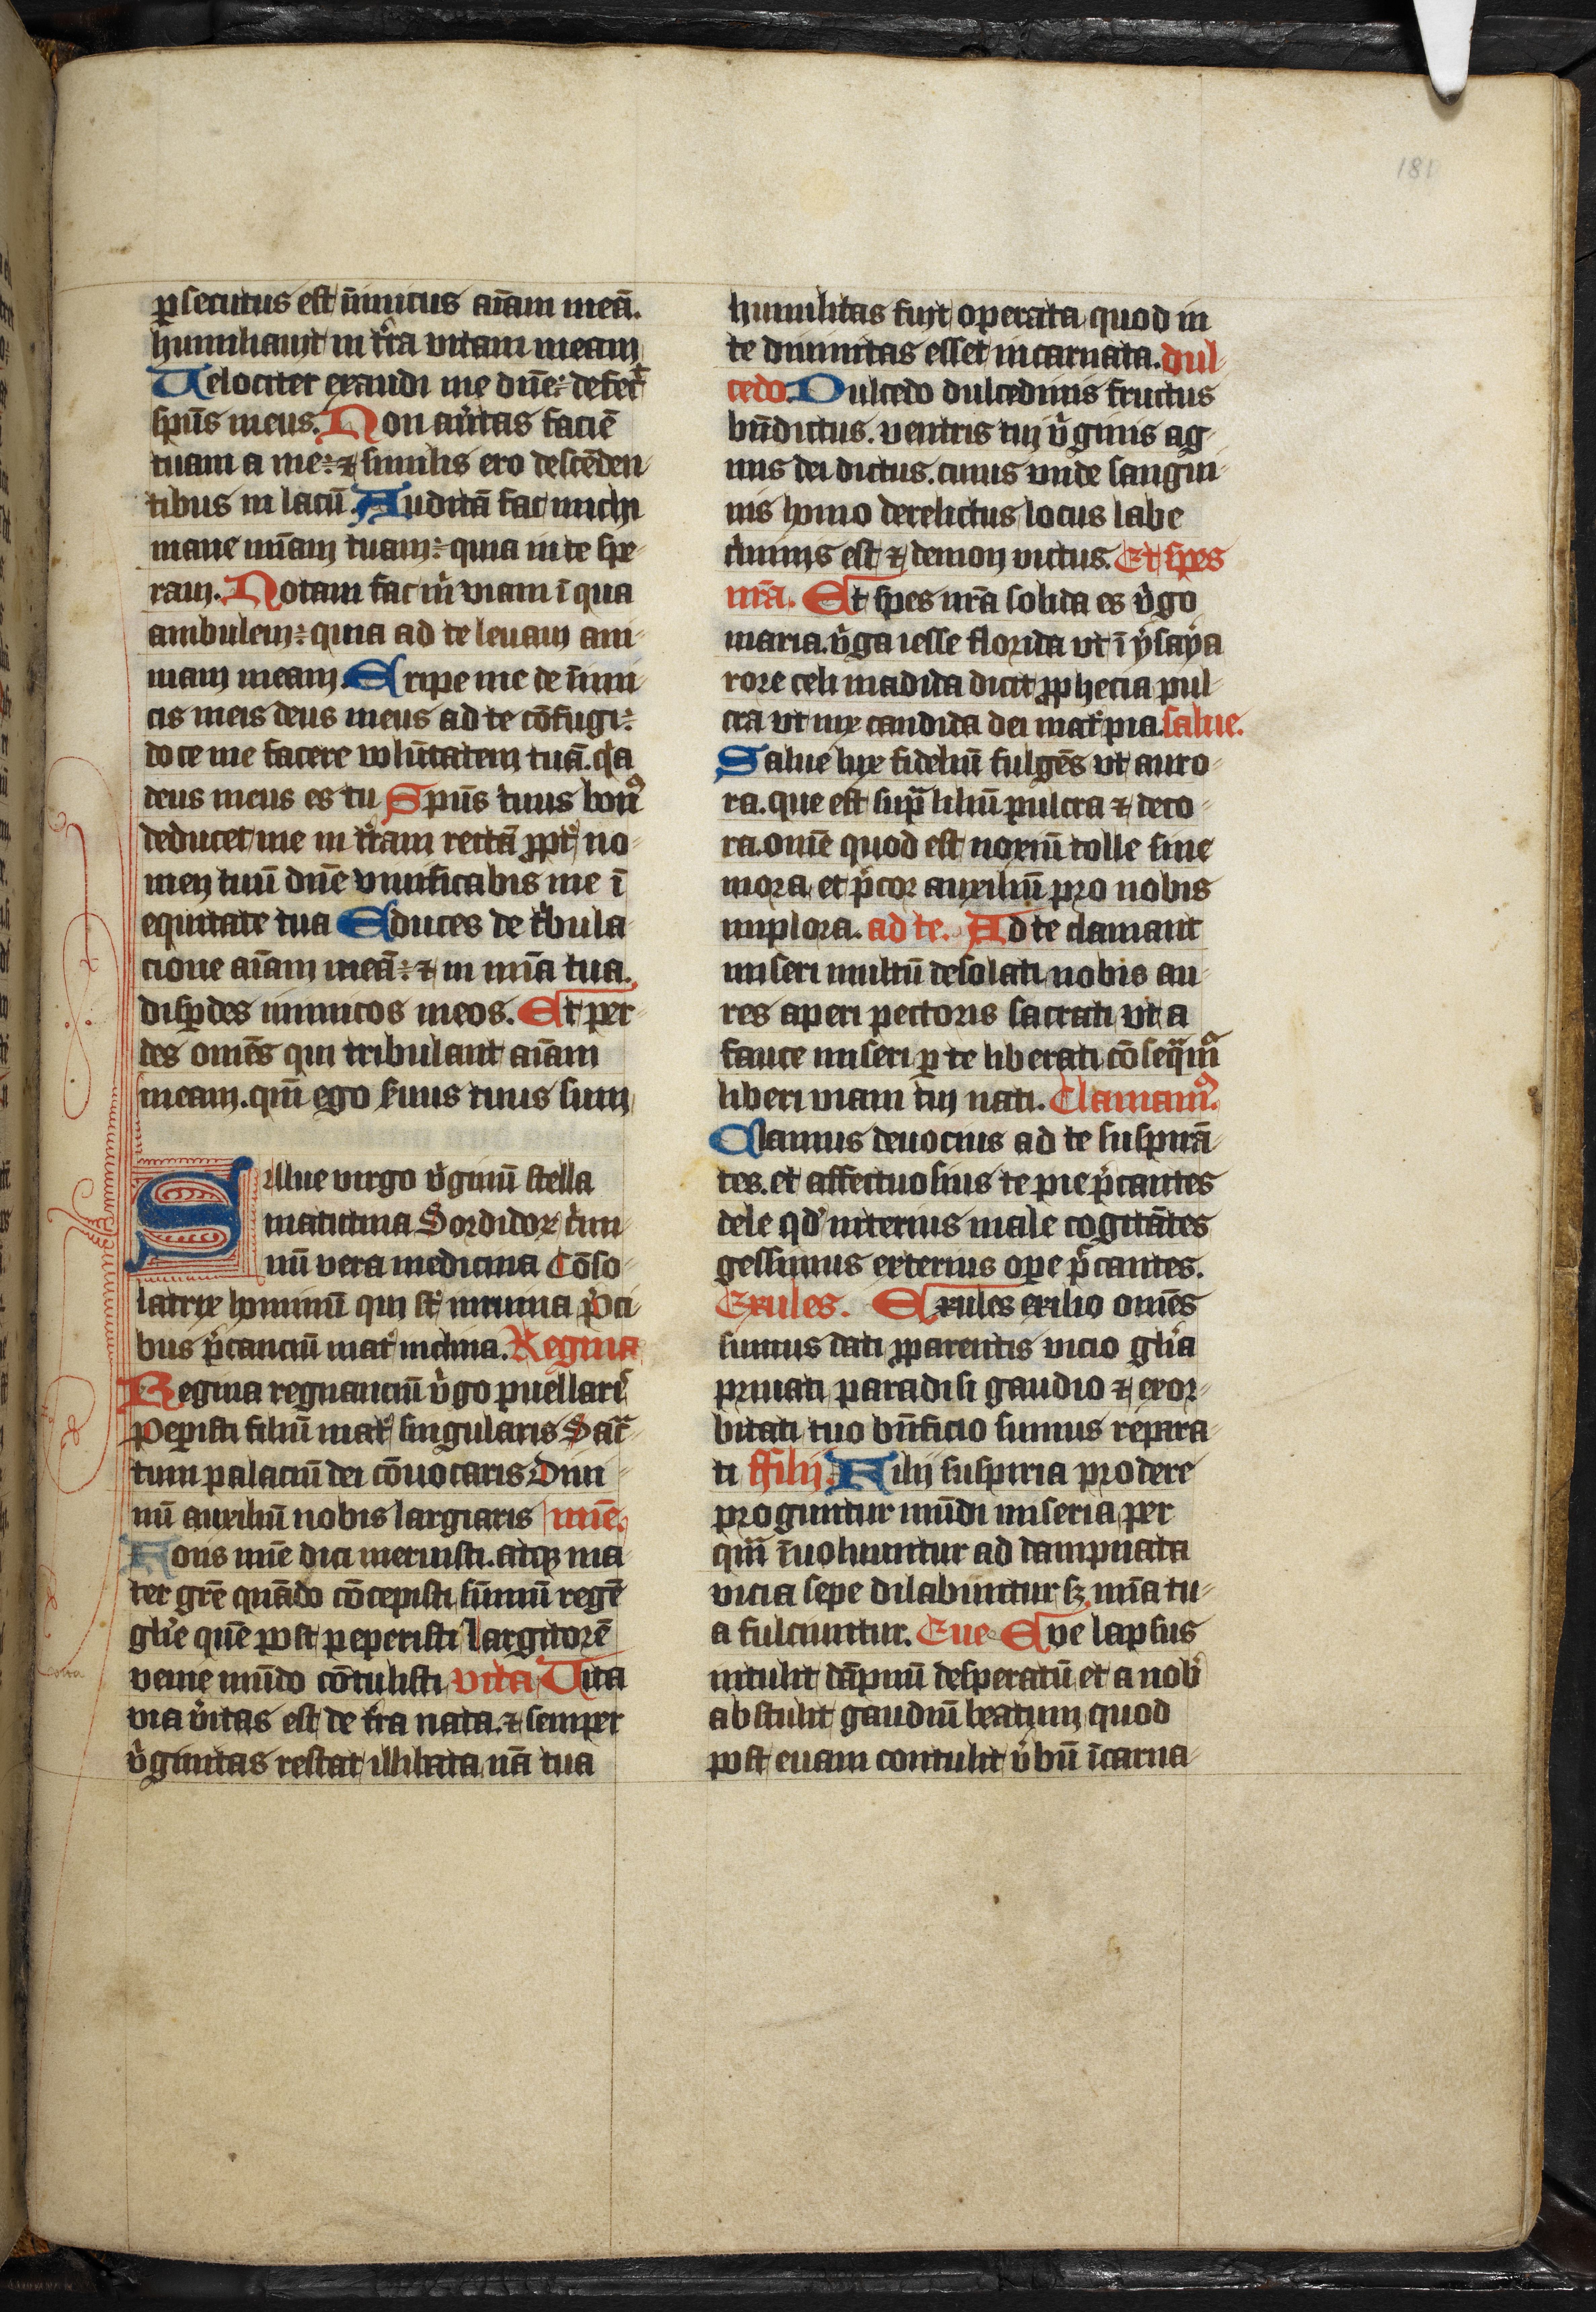 181
ꝑsecutus est īimicus aīam meā.
humiliauit in tͥra vitam meam
Uelociter exaudi me dūe: defecͭ
spūs meus. Non auͥtas faciē
tuam a me: ⁊ similis ero descēden
tibus in lacū. Auditā fac michi
mane mīam tuam: quia in te spe
raui. Notam fac mͥ viam ī qua
ambulem: quia ad te leuaui ani
mam meam. Eripe me de īimi
cis meis deus meus ad te cōfugi:
doce me facere volūtatem tuā. qͥa
deus meus es tu Spūs tuus bonꝰ
deducet me in tͥram rectā ꝓptͥ no
men tuū dūe viuificabis me ī
equitate tua Educes de tͥbula
cione aīam meā: ⁊ in mīa tua
disꝑdes inimicos meos. Et per
des omēs qui tribulant aīam
meam. qm̄ ego suus tuus sum
Salue virgo vͥginū stella
matutina Sordidoꝝ cͥmi
nū vera medicina Cōso
latrix hominū qui st̄ in ruina ṗci
bus p̄canciū matͥ inclina. Regina
Regina regnanciū vͥgo puellarͥ
Peperisti filiū matͥ singularis Sac̄
tum palaciū dei cōuocaris Diui
nū auxiliū nobis largiaris mīe.
Fons mīe dici meruisti. atqꝫ ma
ter grē quādo cōcepisti sūmū regē
glīe quē post peperisti Largitorē
venie mūdo cōtulisti vita Uita
via vͥitas est de tͥra nata. ⁊ semper
vͥginitas restat illibata nā tua
humilitas fuit operata quod in
te diuinitas esset incarnata. dul
cedo. Dulcedo dulcedinis fructus
bn̄dictus. ventris tui vͥginis ag
nus dei dictus. cuius vnde sangui
nis homo derelictus locus labe
cͥminis est ⁊ demon victus. Et spes
nrā. Et spes nrā solida es vͥgo
maria. vͥga iesse florida vt ī ysaya
rore celi madida dicit ꝓphecia pul
cra vt nix candida dei matͥ pia. salue.
Salue lux fideliū fulgēs vt auro
ra. que est supͣ liliū pulcra ⁊ deco
ra. omē quod est noxiū tolle sine
mora. et p̄cor auxiliū pro nobis
implora. ad te. Ad te clamant
miseri multū desolati nobis au
res aperi pectoris sacrati vt a
fauce miseri ꝑ te liberati cōseqͣmͬ
liberi viam tui nati. Clamamꝰ.
Clamus deuocius ad te suspirā
tes. et affectuosius te pie p̄cantes
dele qd' interius male cogitātes
gessimus exterius ope p̄cantes.
Exules. Exules exilio omēs
sumus dati ꝓparentis vicio glīa
priuati paradisi gaudio ⁊ exor
bitati tuo bn̄ficio sumus repara
ti ffilij. Filij suspiria prodere
proguntur mūdi miseria per
qm̄ īuoluuntur ad dampnata
vicia sepe dilabuntur sꝫ mīa tu
a fulciuntur. Eue Eve lapsus
intulit dāpnū desperatū et a nobͥ
abstulit gaudiū beatum quod
post euam contulit vͥbū īcarna